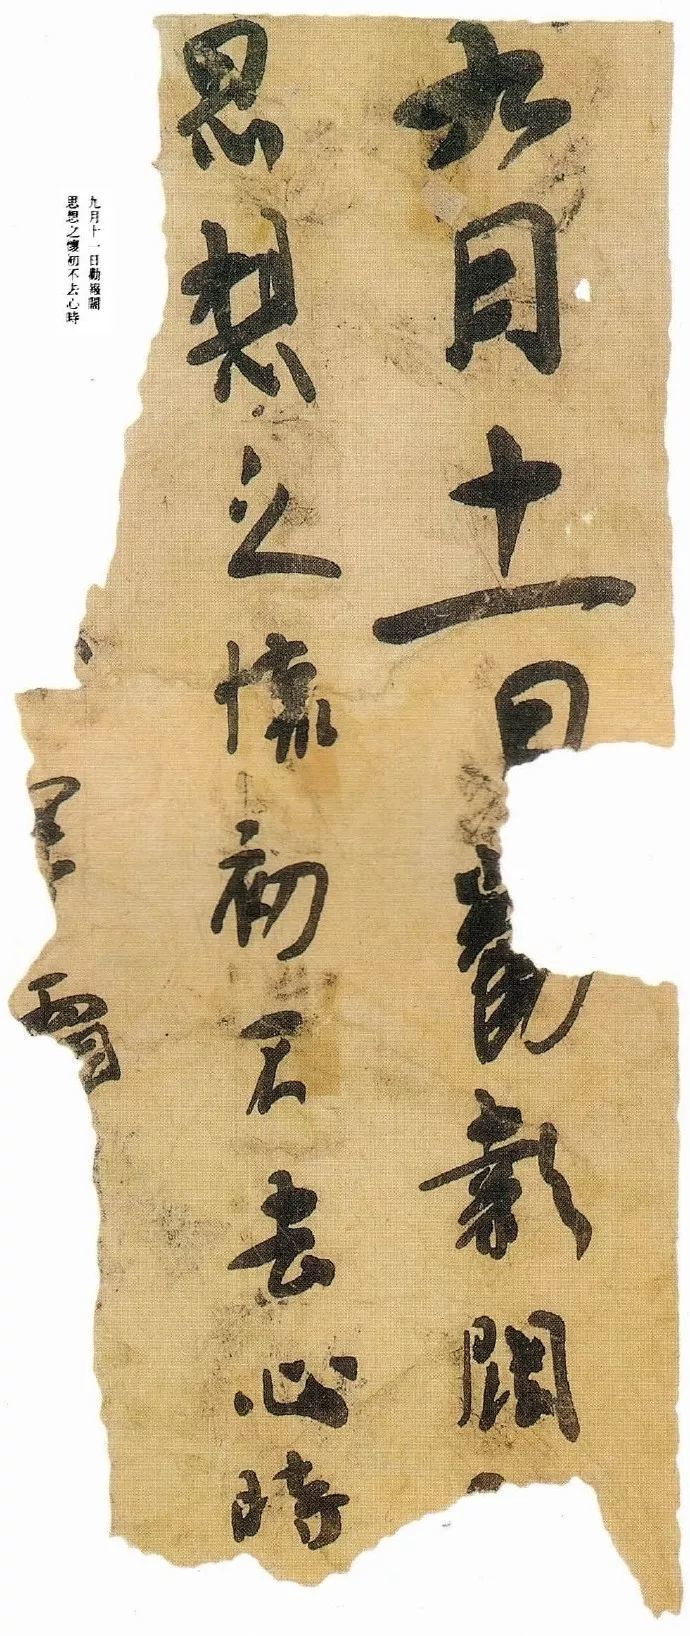 九月十一日勸報闊
思想之懷初不去心時
九月十一日勸報闊
思想之懷初不去心時